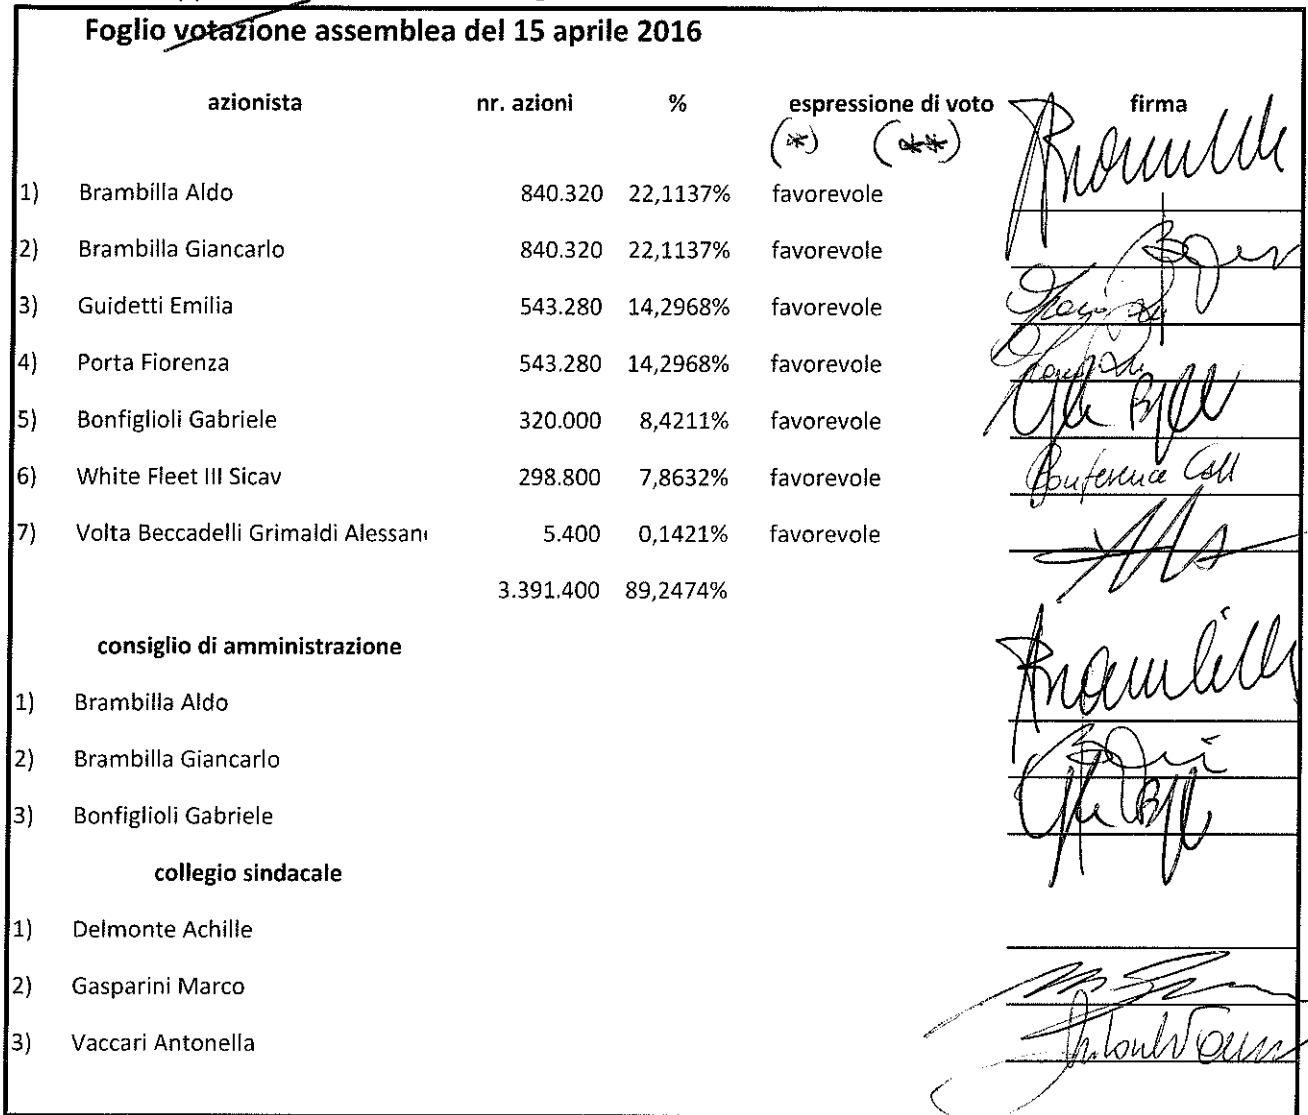 Foglio votazione assemblea del 15 aprile 2016
azionista nr. azioni % espressione di voto firma
(*) (**)
1) Brambilla Aldo 840.320 22,1137% favorevole
2) Brambilla Giancarlo 840.320 22,1137% favorevole
3) Guidetti Emilia 543.280 14,2968% favorevole
4) Porta Fiorenza 543.280 14,2968% favorevole
5) Bonfiglioli Gabriele 320.000 8,4211% favorevole
6) White Fleet III Sicav 298.800 7,8632% favorevole Conference Call
7) Volta Beccadelli Grimaldi Alessan 5.400 0,1421% favorevole
3.391.400 89,2474%
consiglio di amministrazione
1) Brambilla Aldo
2) Brambilla Giancarlo
3) Bonfiglioli Gabriele
collegio sindacale
1) Delmonte Achille
2) Gasparini Marco
3) Vaccari Antonella